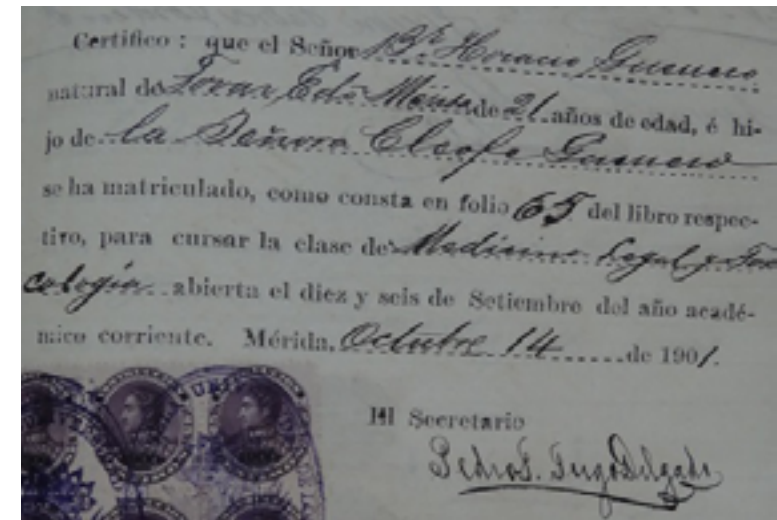 Certifico: que el Señor Br Horacio Guerrero
natural de Tovar, Edo Mérida de 21 años de edad, é hi-
jo de la Señora Cleofe Guerrero
se ha matriculado, como consta en folio 65 del libro respec-
tivo, para cursar la clase de Medicina Legal y Toxi
cología abierta el diez y seis de Setiembre del año acadé-
mico corriente. Mérida, Octubre 14 de 1901.
El Secretario
Pedro Delgado